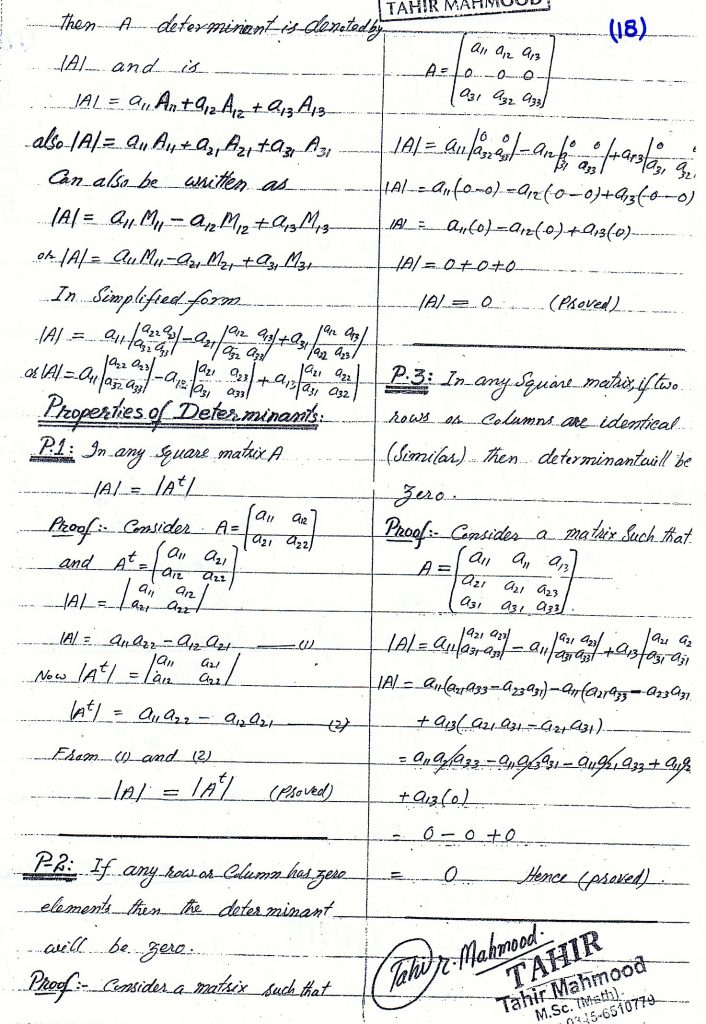 TAHIR MAHMOOD
(18)
then A determinant is denoted by
|A| and is
|A| = a₁₁ A₁₁ + a₁₂ A₁₂ + a₁₃ A₁₃
also |A| = a₁₁ A₁₁ + a₂₁ A₂₁ + a₃₁ A₃₁
Can also be written as
|A| = a₁₁ M₁₁ − a₁₂ M₁₂ + a₁₃ M₁₃
or |A| = a₁₁ M₁₁ − a₂₁ M₂₁ + a₃₁ M₃₁
In Simplified form
|A| = a₁₁ |a₂₂ a₂₃; a₃₂ a₃₃| − a₂₁ |a₁₂ a₁₃; a₃₂ a₃₃| + a₃₁ |a₁₂ a₁₃; a₂₂ a₂₃|
or |A| = a₁₁ |a₂₂ a₂₃; a₃₂ a₃₃| − a₁₂ |a₂₁ a₂₃; a₃₁ a₃₃| + a₁₃ |a₂₁ a₂₂; a₃₁ a₃₂|
Properties of Determinants:
P.1: In any square matrix A
|A| = |Aᵗ|
Proof:- Consider A = [a₁₁ a₁₂; a₂₁ a₂₂]
and Aᵗ = [a₁₁ a₂₁; a₁₂ a₂₂]
|A| = |a₁₁ a₁₂; a₂₁ a₂₂|
|A| = a₁₁ a₂₂ − a₁₂ a₂₁ —— (1)
Now |Aᵗ| = |a₁₁ a₂₁; a₁₂ a₂₂|
|Aᵗ| = a₁₁ a₂₂ − a₁₂ a₂₁ —— (2)
From (1) and (2)
|A| = |Aᵗ| (Proved)
P-2: If any row or Column has zero
elements then the determinant
will be zero.
Proof:- Consider a matrix such that
A = [a₁₁ a₁₂ a₁₃; 0 0 0; a₃₁ a₃₂ a₃₃]
|A| = a₁₁ |0 0; a₃₂ a₃₃| − a₁₂ |0 0; a₃₁ a₃₃| + a₁₃ |0 0; a₃₁ a₃₂
|A| = a₁₁(0−0) − a₁₂(0−0) + a₁₃(0−0)
|A| = a₁₁(0) − a₁₂(0) + a₁₃(0)
|A| = 0+0+0
|A| = 0 (Proved)
P.3: In any Square matrix, if two
rows or columns are identical
(Similar) then determinant will be
Zero.
Proof:- Consider a matrix Such that
A = [a₁₁ a₁₁ a₁₃; a₂₁ a₂₁ a₂₃; a₃₁ a₃₁ a₃₃]
|A| = a₁₁ |a₂₁ a₂₃; a₃₁ a₃₃| − a₁₁ |a₂₁ a₂₃; a₃₁ a₃₃| + a₁₃ |a₂₁ a₂; a₃₁ a₃₁
|A| = a₁₁(a₂₁a₃₃ − a₂₃a₃₁) − a₁₁(a₂₁a₃₃ − a₂₃a₃₁
+ a₁₃(a₂₁ a₃₁ − a₂₁ a₃₁)
= a₁₁a₂₁a₃₃ − a₁₁a₂₃a₃₁ − a₁₁a₂₁a₃₃ + a₁₁a₂
+ a₁₃(0)
= 0 − 0 + 0
= 0 Hence (proved).
Tahir Mahmood.
TAHIR
Tahir Mahmood
M.Sc. (Math)
0345-6510779